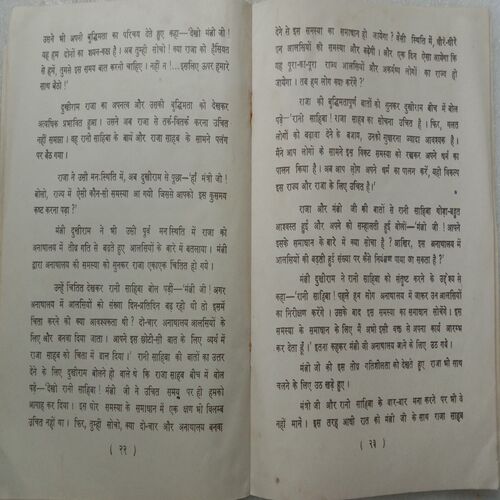 उसने भी अपनी बुद्धिमता का परिचय देते हुए कहा—'देखो मंत्री जी !
यह हम दोनों का शयन-कक्ष है । अब तुम्ही सोचो ! क्या राजा की हैसियत
से हमें, तुमसे इस समय बात करनी चाहिए । नहीं न !...इसलिए ऊपर हमारे
साथ बैठो !'
दुखीराम राजा का अपनत्व और उसकी बुद्धिमता को देखकर
अत्यधिक प्रभावित हुआ । उसने अब राजा से तर्क-वितर्क करना उचित
नहीं समझा । वह रानी साहिबा के बायें और राजा साहब के सामने पलंग
पर बैठ गया ।
राजा ने उसी मनःस्थिति में, अब दुखीराम से पूछा—'हाँ मंत्री जी !
बोलो, राज्य में ऐसी कौन-सी समस्या आ गयी जिससे आपको इस कुसमय
कष्ट करना पड़ा ?'
मंत्री दुखीराम ने भी उसी पूर्व मनःस्थिति में राजा को
अनाथालय में तीव्र गति से बढ़ते हुए आलसियों के बारे में बतलाया । मंत्री
द्वारा अनाथालय की समस्या को सुनकर राजा एकाएक चिंतित हो गये ।
उन्हें चिंतित देखकर रानी साहिबा बोल पड़ी—'मंत्री जी ! अगर
अनाथालय में आलसियों को संख्या दिन-प्रतिदिन बढ़ रही थी तो इसमें
चिंता करने की क्या आवश्यकता थी ? दो-चार अनाथालय आलसियों के
लिए और बनवा दिया जाता । आपने इस छोटी-सी बात के लिए व्यर्थ में
राजा साहब को चिंता में डाल दिया ।' रानी साहिबा की बातों का उत्तर
देने के लिए दुखीराम बोलने ही वाले थे कि राजा साहब बीच में बोल
पड़े—'देखो रानी साहिबा ! मंत्री जी ने उचित समय पर ही हमको
आगाह कर दिया । इस घोर समस्या के समाधान में एक क्षण भी विलम्ब
उचित नहीं था । फिर, तुम्हीं सोचो, क्या दो-चार और अनाथालय बनवा
( २२ )
देने से इस समस्या का समाधान हो जायेगा ? वैसी स्थिति में, धीरे-धीरे
उन आलसियों की समस्या और बढ़ेगी । और एक दिन ऐसा आयेगा कि
यह पूरा-का-पूरा राज्य आलसियों और अकर्मण्य लोगों का राज्य हो
जायेगा । तब हम लोग क्या करेंगे ?'
राजा की बुद्धिमतापूर्ण बातों को सुनकर दुखीराम बीच में बोल
पड़े—'रानी साहिबा ! राजा साहब का सोचना उचित है । फिर, गलत
लोगों को बढ़ावा देने के बजाय, उनको सुधारना ज्यादा आवश्यक है ।
मैंने आप लोगों के सामने इस विकट समस्या को रखकर अपने धर्म का
पालन किया है । अब आप लोग अपने धर्म का पालन करें, यही विकल्प
इस राज्य और राजा के लिए उचित है ।'
राजा और मंत्री जी की बातों से रानी साहिबा थोड़ा-बहुत
आश्वस्त हुईं और अपने को सम्हालती हुई बोलीं—'मंत्री जी ! आपने
इसके समाधान के बारे में क्या सोचा है ? आखिर, इस अनाथालय में
आलसियों की बढ़ती हुई संख्या पर कैसे नियंत्रण पाया जा सकता है ?'
मंत्री दुखीराम ने रानी साहिबा को संतुष्ट करने के उद्देश्य से
कहा—'रानी साहिबा ! पहले हम लोग अनाथालय में जाकर उन आलसियों
का निरीक्षण करेंगे । उसके बाद इस समस्या का समाधान सोचेंगे । इस
समस्या के समाधान के लिए मैं अभी इसी वक्त से अपना कार्य आरम्भ
कर देता हूँ ।' इतना कहकर मंत्री जी अनाथालय जाने के लिए उठ गये ।
मंत्री जी की इस तीव्र गतिशीलता को देखते हुए राजा भी साथ
चलने के लिए उठ खड़े हुए ।
मंत्री जी और रानी साहिबा के बार-बार मना करने पर भी वे
नहीं मानें । इस तरह आधी रात को मंत्री जी के साथ राजा साहब
( २३ )